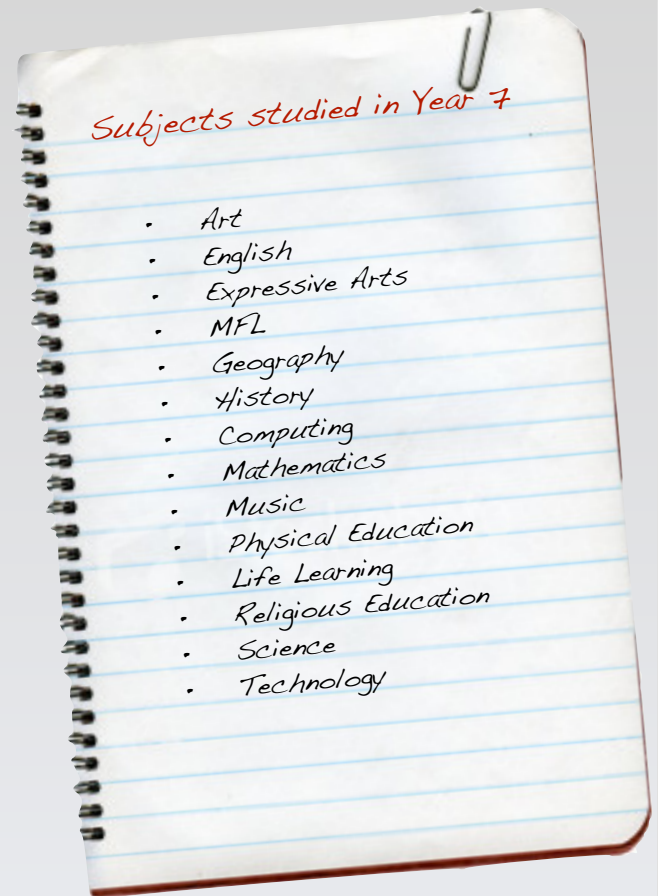 Subjects studied in Year 7
· Art
· English
· Expressive Arts
· MFL
· Geography
· History
· Computing
· Mathematics
· Music
· Physical Education
· Life Learning
· Religious Education
· Science
· Technology